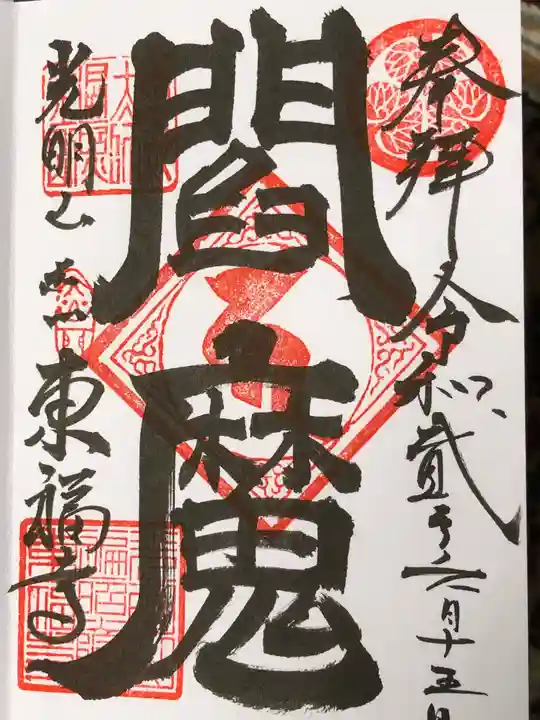 奉拝 令和貳年六月十五日
閻魔
光明山 東福寺